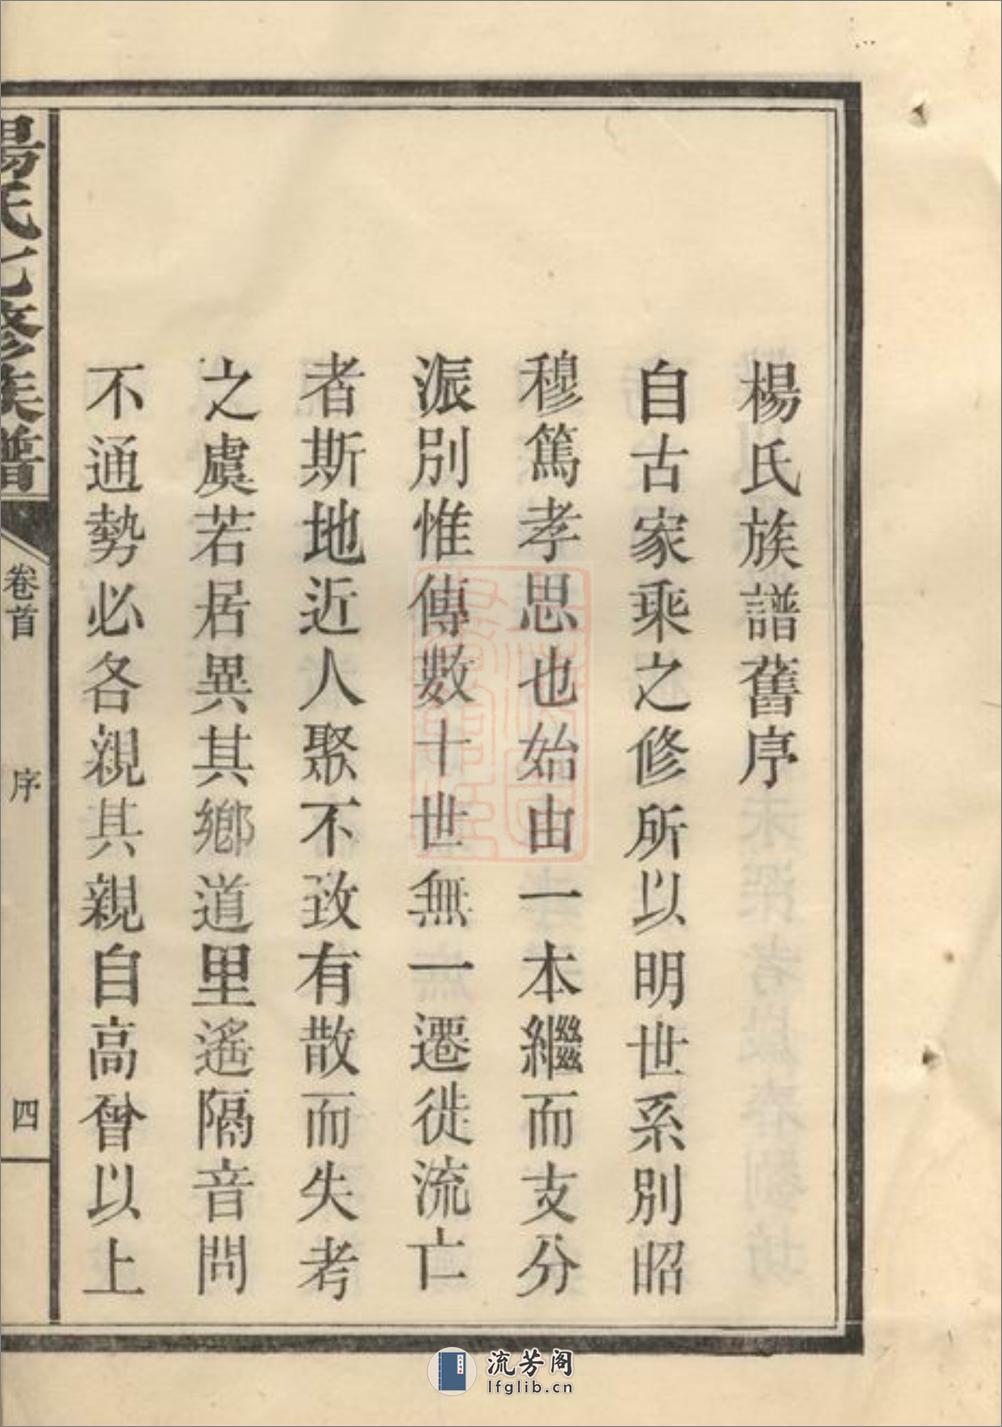 楊氏族譜舊序
自古家乘之修所以明世系別昭
穆篤孝思也始由一本繼而支分
派別惟傳數十世無一遷徙流亡
者斯地近人聚不致有散而失考
之虞若居異其鄉道里遙隔音問
不通勢必各親其親自高曾以上
楊氏七修族譜
卷首
序
四
流芳阁
lfglib.cn